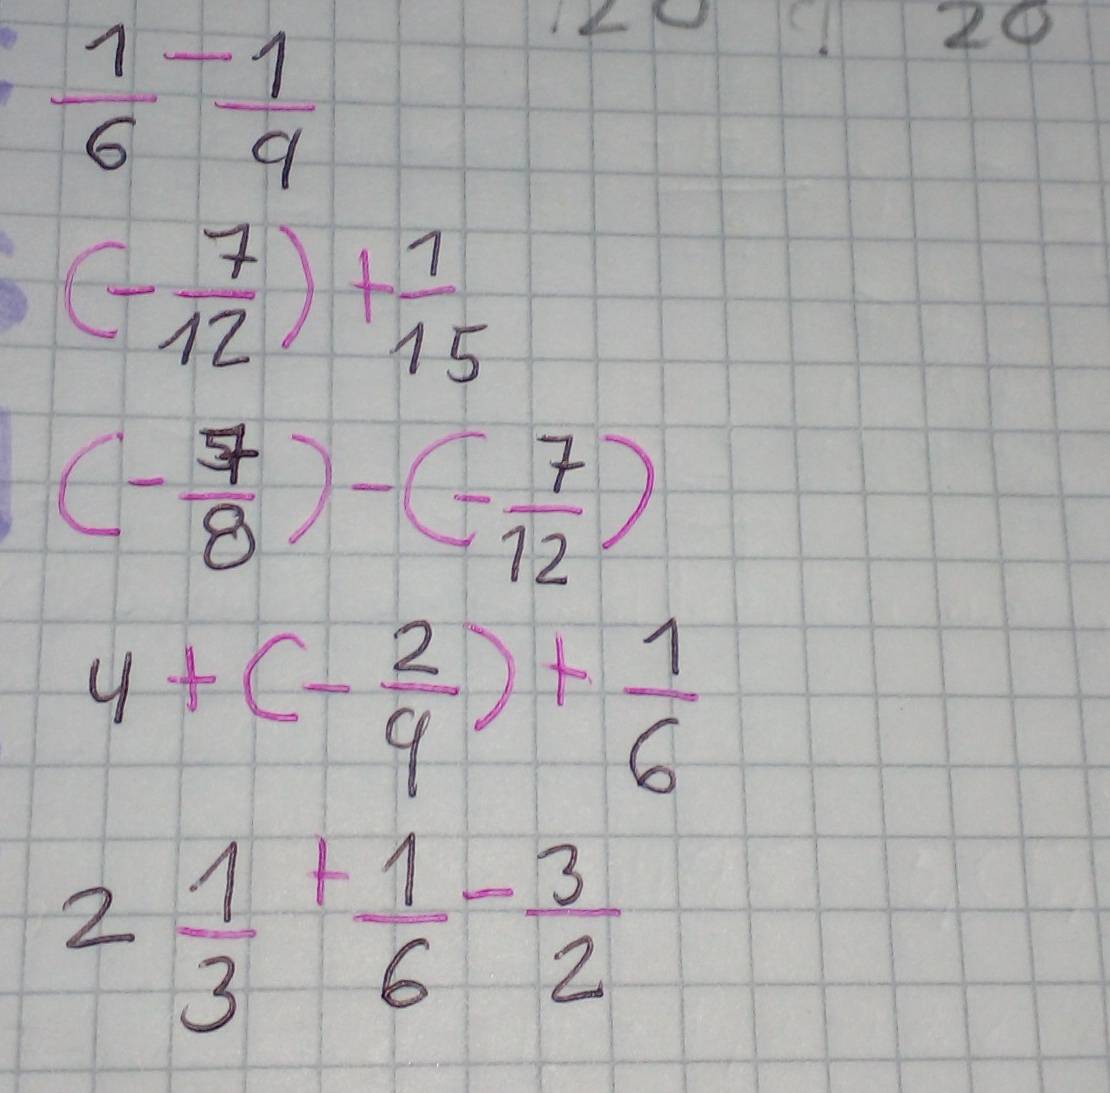 20 20
1/6 - 1/9
(- 7/12) + 1/15
(- /8) - (- 7/12)
4 + (- 2/9) + 1/6
2 1/3 + 1/6 - 3/2